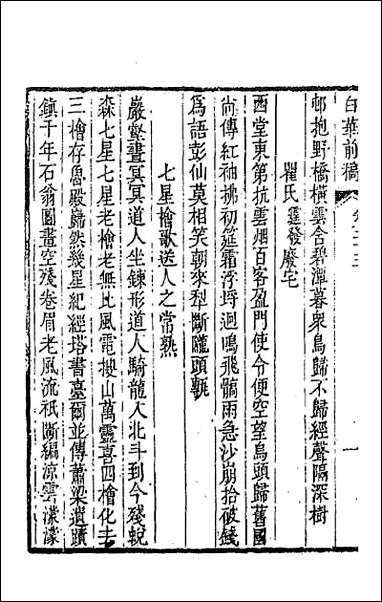 白華前稿
卷二十三
一
邨抱野橋橫雲含碧潭暮衆鳥歸不歸經聲隔深樹
瞿氏霆發廢宅
西堂東第抗雲烟百客盈門使令便空望烏頭歸舊國
尚傳紅袖拂初筵霜浮埒迴鳴飛髇雨急沙崩拾破錢
爲語彭仙莫相笑朝來犁斷隴頭甎
七星檜歌送人之常熟
巖壑晝冥冥道人坐鍊形道人騎龍入北斗到今殘蛻
森七星七星老檜老無比風電摟山萬靈喜四檜化去
三檜存魯殿巋然幾星紀經塔書臺爾並傳蕭梁遺蹟
鎮千年石翁圖畫空殘卷眉老風流祇斷編涼雲濛濛